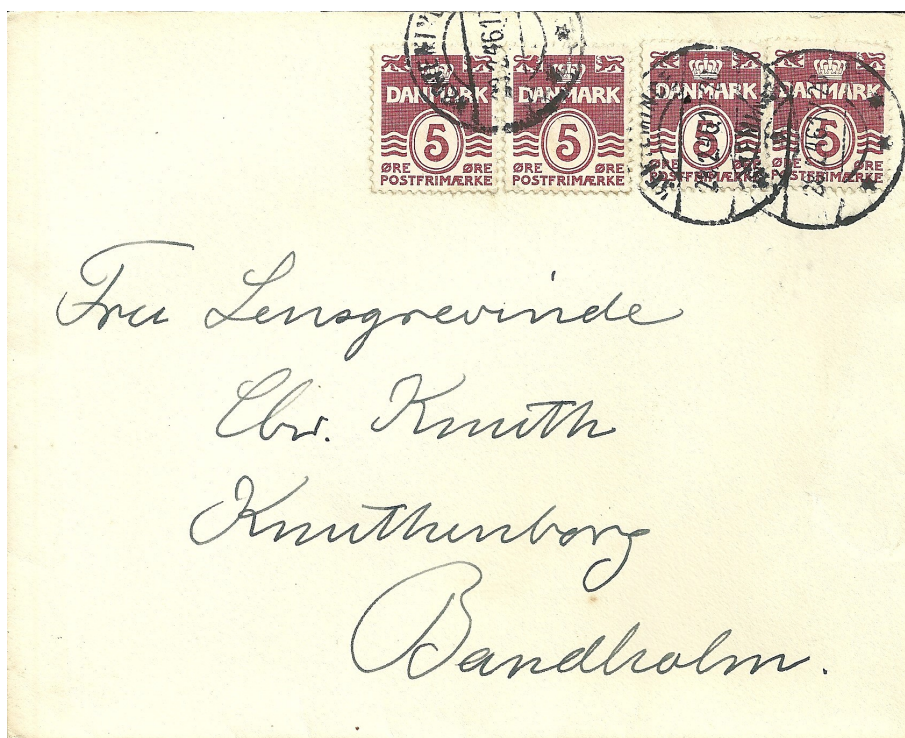 DANMARK 5 ØRE ØRE POSTFRIMÆRKE
DANMARK 5 ØRE ØRE POSTFRIMÆRKE
DANMARK 5 ØRE ØRE POSTFRIMÆRKE
DANMARK 5 ØRE ØRE POSTFRIMÆRKE
Fru Lensgrevinde
Chr. Knuth
Knuthenborg
Bandholm.